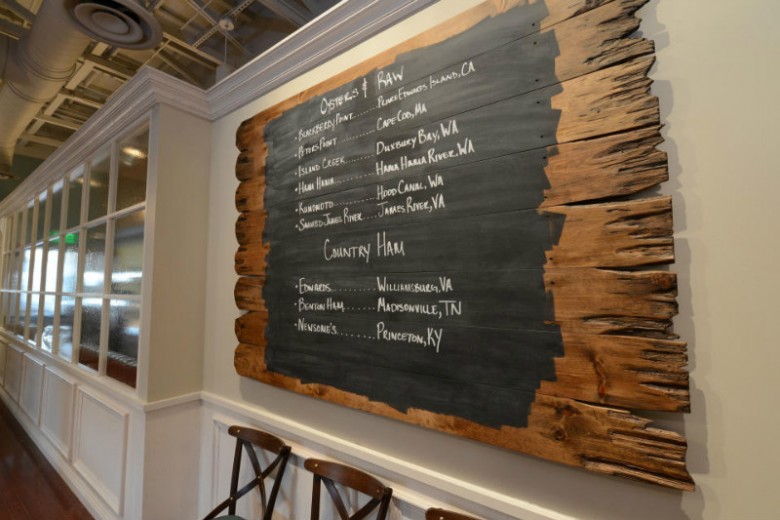 Oysters & Raw
• Blackberry Point ........ Prince Edwards Island, CA
• Peters Point ........ Cape Cod, MA
• Island Creek ........ Duxbury Bay, WA
• Hama Hama ........ Hama Hama River, WA
• Kumomoto ........ Hood Canal, WA
• Smoked James River .... James River, VA
Country Ham
• Edwards ........ Williamsburg, VA
• Benton Ham ........ Madisonville, TN
• Newsome's ........ Princeton, KY